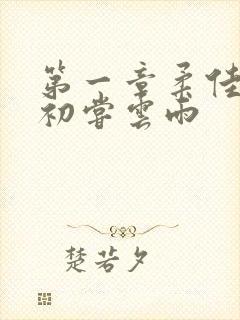 第一章柔佳
初嘗雲雨
楚若夕